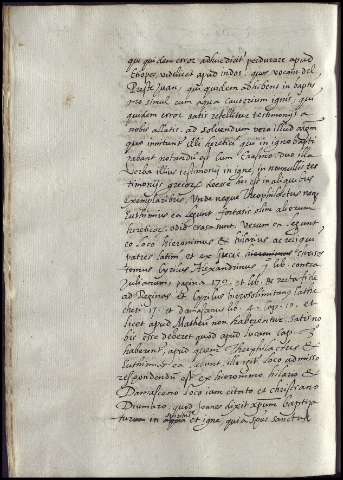 qui quidem error adhuc dicitur perdurare apud
Ethiopes, videlicet apud indos quos vocant del
Preste Juan, qui quidem adhibent in baptis
mo simul cum aqua cauterium ignis, qui
quidem error satis refellitur testimonijs a
nobis allatis. ad solvendum vero illud
quo innituntur illi heretici qui in igne bapti
zabant notandum est cum Erasmo duo illa
verba illius testimonij in igne, in nonnullis tes
timonijs grecorum deesse hoc est in aliquibus
exemplaribus. Unde neque Theophilactus neque
Euthimius ea legunt fortasis olim ab
hereticis, odio erasa sunt. Verum ea legunt
eo loco hieronimus et hilarius ac reliqui
patres latini, et ex grecis
Cyrilus Alexandrinus lib. contra
Julianum pagina 172. et lib. de recta fide
ad Reginas et Cyrilus hierosolimitanus cathe
chesi 17. et damascenus lib. 4. cap. 10. et
licet apud Matheum non haberentur satis no
bis esse deberet quod apud lucam cap. 3
haberent, apud quem Theophilactus et
Euthimius ea legunt, illo loco admisso
respondendum est ex hieronimo hilario et
Damasceno loco iam citato et christiano
quod Joanes dixit christum baptiza
turum in spiritu et igne quia spiritus sanctus